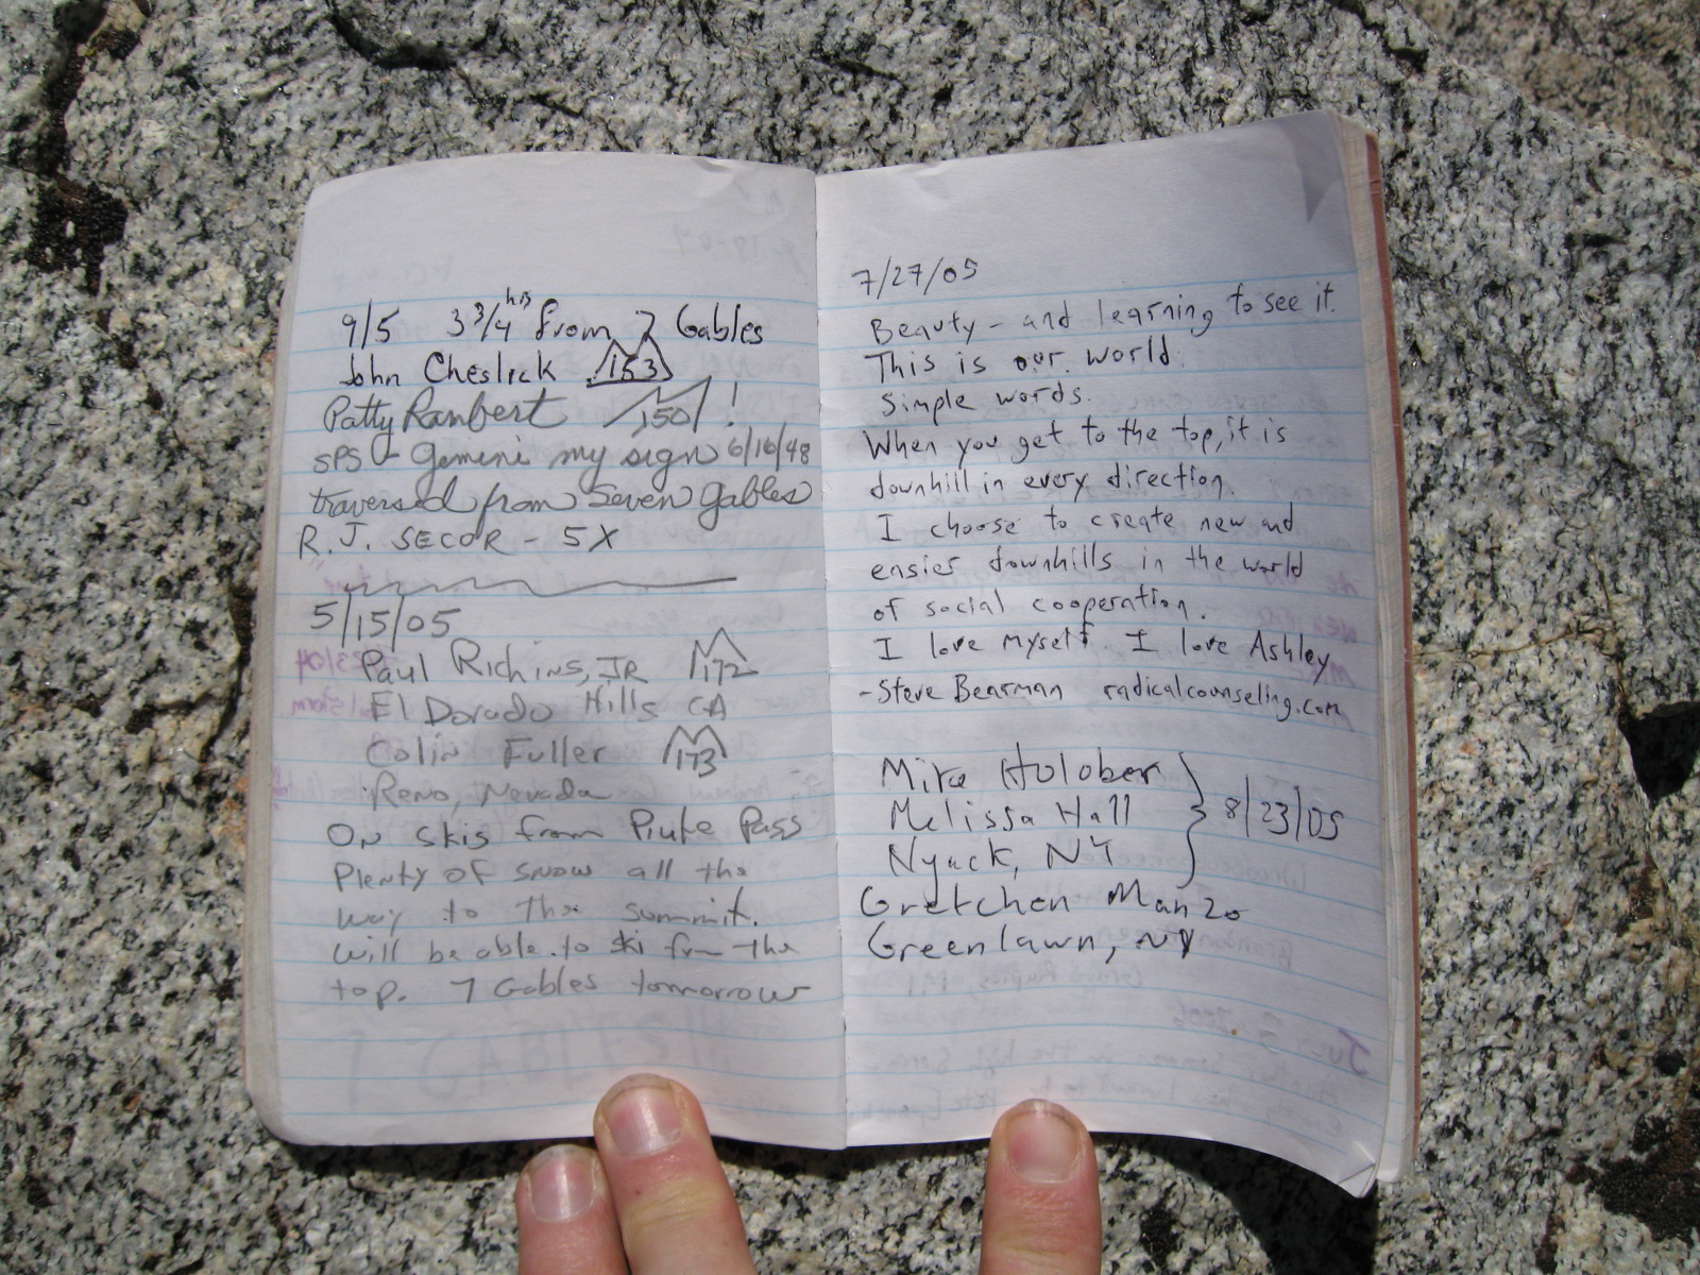 9/5 3 3/4 hrs from 7 Gables
John Cheslick 153
Patty Rambert 150 !
SPS - Gemini my sign 6/16/48
traversed from Seven Gables
R.J. SECOR - 5X
5/15/05
Paul Richins, JR 172
El Dorado Hills CA
Colin Fuller 173
Reno, Nevada
On skis from Piute Pass
Plenty of snow all the
way to the summit.
Will be able to ski from the
top. 7 Gables tomorrow
7/27/05
Beauty - and learning to see it.
This is our world.
Simple words.
When you get to the top, it is
downhill in every direction.
I choose to create new and
easier downhills in the world
of social cooperation.
I love myself. I love Ashley
- Steve Bearman radicalcounseling.com
Mike Holober
Melissa Hall } 8/23/05
Nyack, NY
Gretchen Manzo
Greenlawn, NY